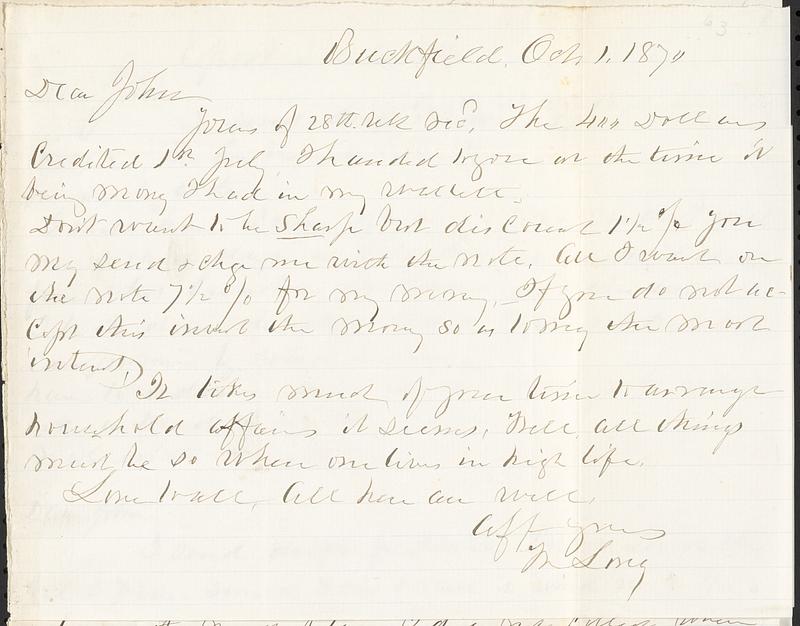 Buckfield, Oct. 1, 1870
Dear John
Yours of 28th. ult rec'd. The 400 Dollars
Credited 1st July I handed to you at the time it
being money I had in my wallett.
Dont want to be Sharp but discount 1½ % you
my send & chge me with the note. All I want on
the note 7½ % for my money. If you do not ac-
cept this invest the money so as to my the most
interest.
It takes much of your time to arrange
household affairs it seems, Well all things
must be so when one lives in high life.
Love to all, All here are well,
Aff yours
Z Long